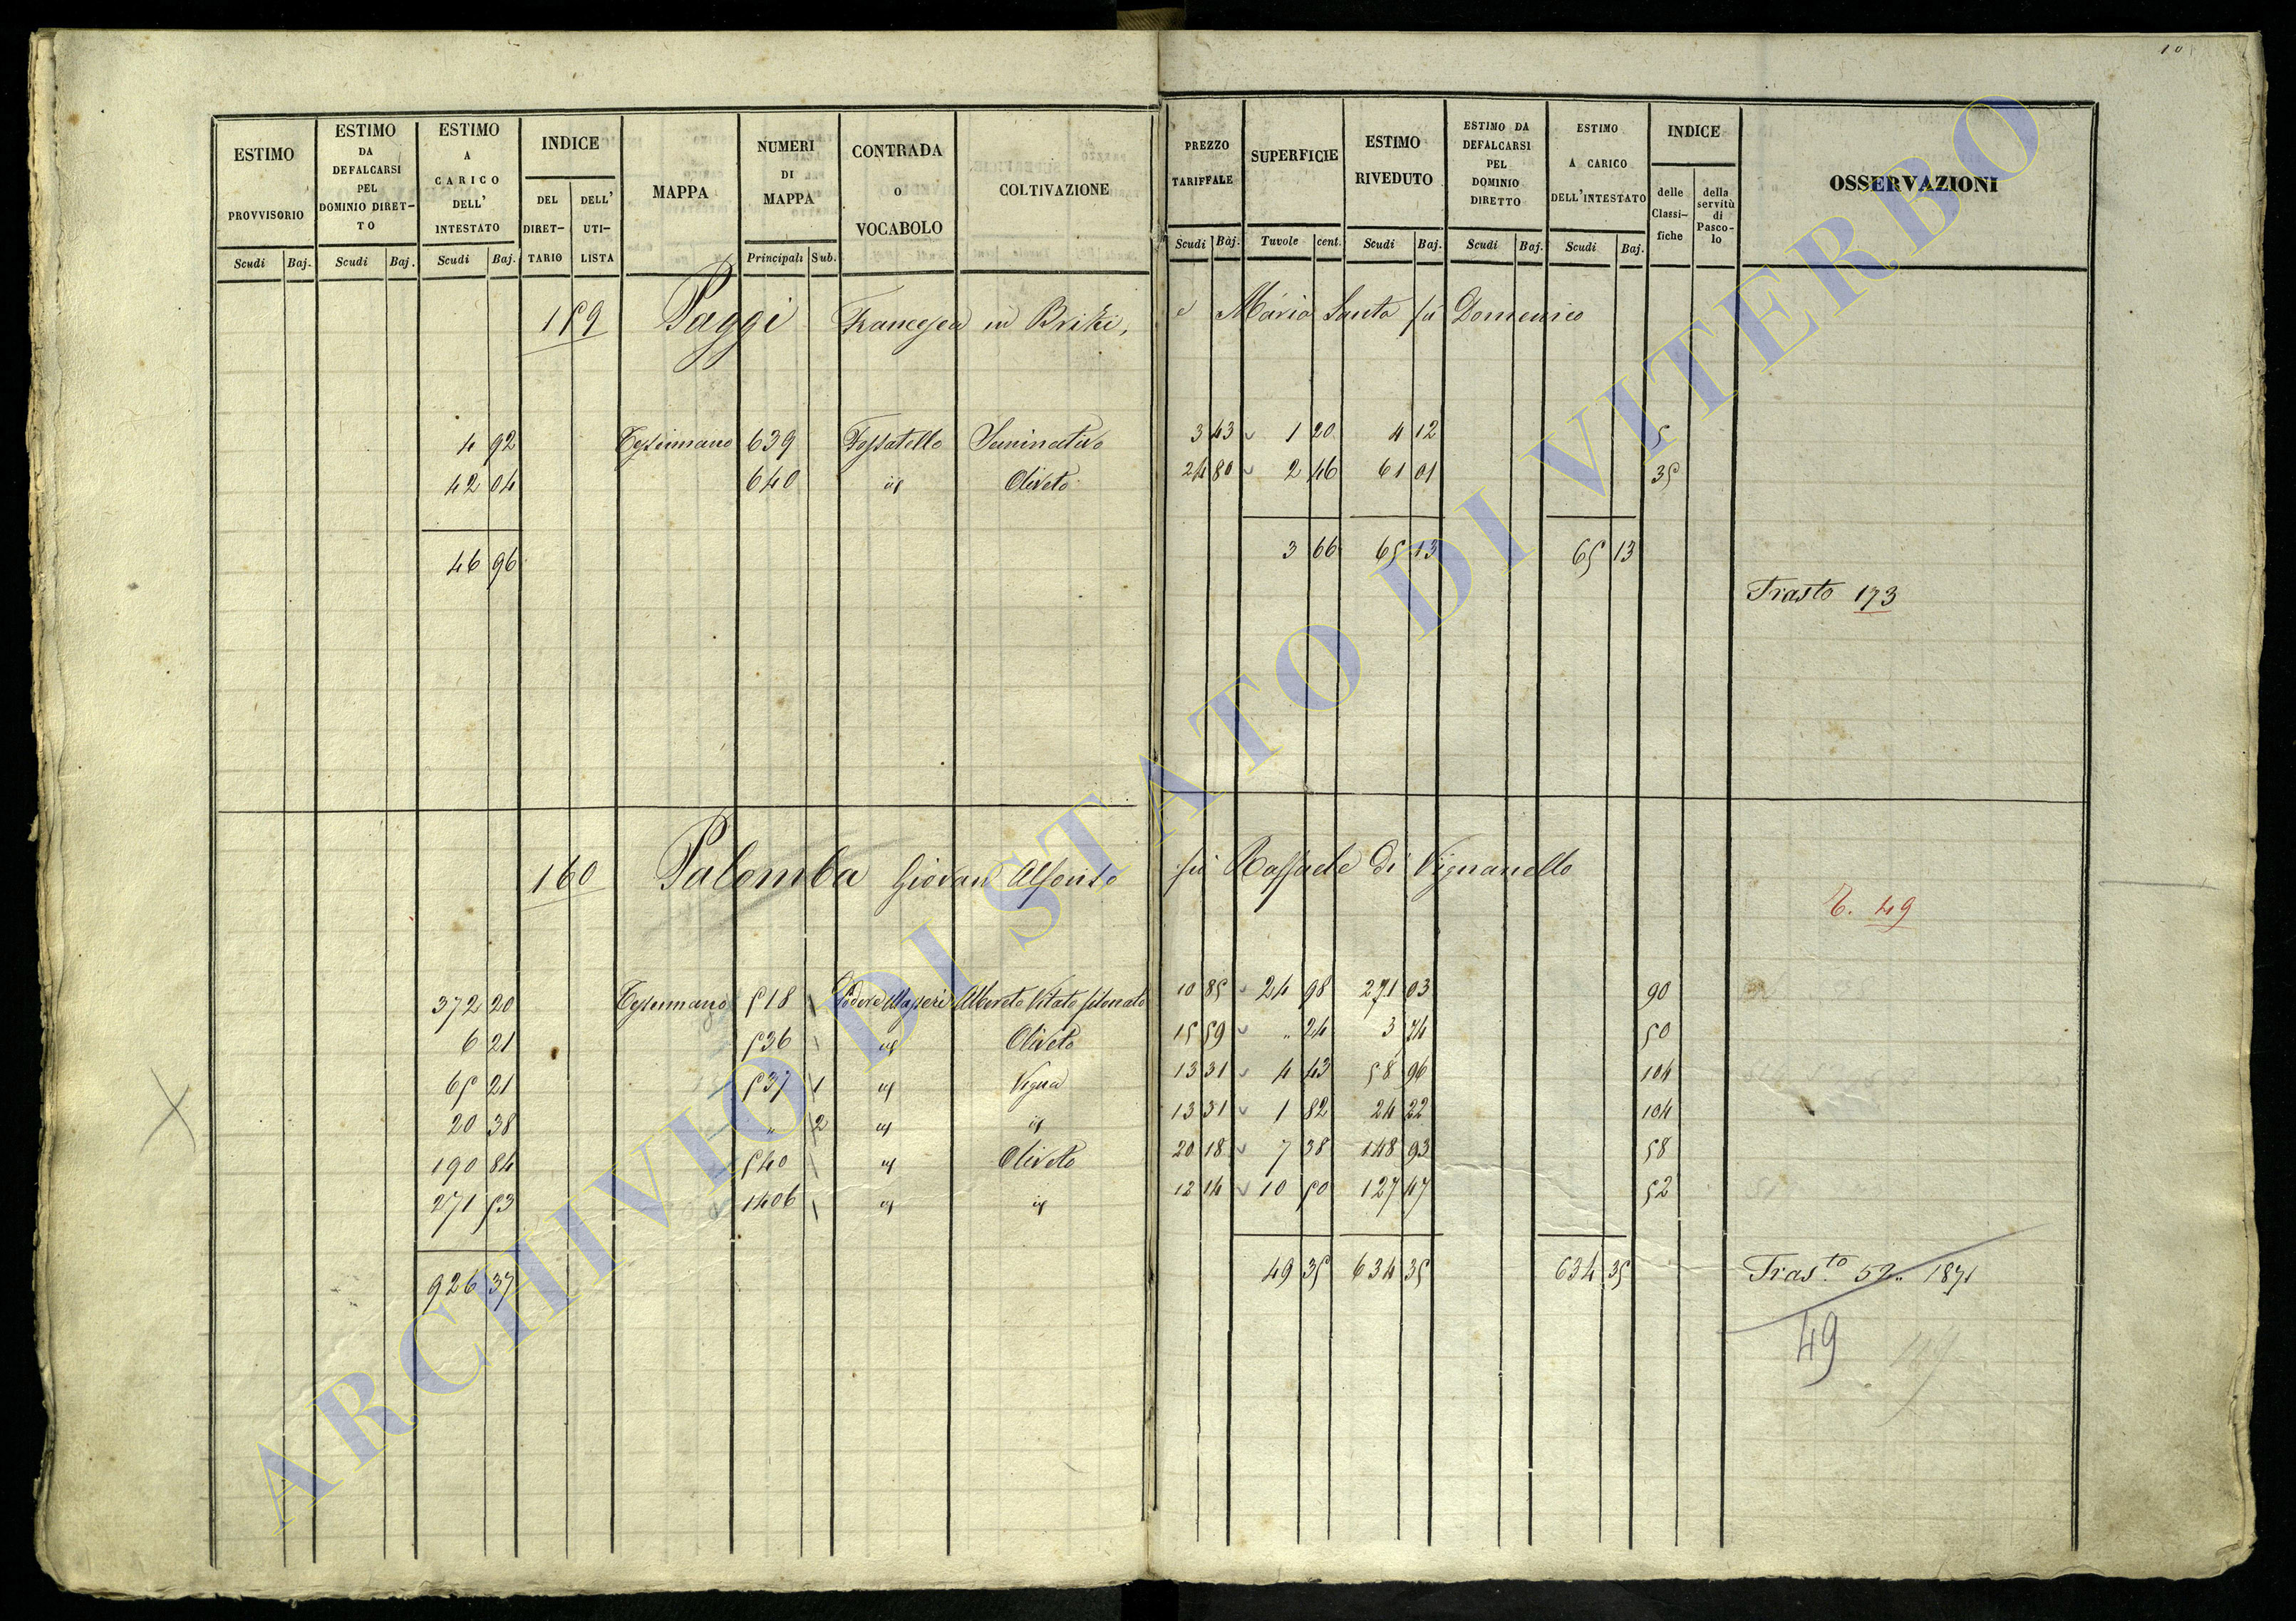 10
ESTIMO PROVVISORIO Scudi Baj.
ESTIMO DA DEFALCARSI PEL DOMINIO DIRET-TO Scudi Baj.
ESTIMO A CARICO DELL' INTESTATO Scudi Baj.
INDICE DEL DIRET-TARIO DELL' UTI-LISTA
MAPPA
NUMERI DI MAPPA Principali Sub.
CONTRADA O VOCABOLO
COLTIVAZIONE
PREZZO TARIFFALE Scudi Baj.
SUPERFICIE Tavole cent.
ESTIMO RIVEDUTO Scudi Baj.
ESTIMO DA DEFALCARSI PEL DOMINIO DIRETTO Scudi Baj.
ESTIMO A CARICO DELL'INTESTATO Scudi Baj.
INDICE delle Classi-fiche della servitù di Pasco-lo
OSSERVAZIONI
159 Paggi Francesca in Brizi, e Maria Santa fù Domenico
4 92 639 Fossatello Seminativo 3 43 1 20 4 12 5
42 04 640 id Oliveto 24 80 2 46 61 01 35
46 96 3 66 65 13 65 13
Trasto 173
160 Palomba Giovan Alfonso fù Raffaele di Vignanello
T. 49
372 20 518 Podere Alborato Vitato 10 85 24 98 271 03 90
6 21 536 id Oliveto 15 59 " 24 3 74 50
65 21 537 1 id Vigna 13 31 4 43 58 96 104
20 38 " 2 id id 13 31 1 82 24 22 104
190 84 540 id Oliveto 20 18 7 38 148 93 58
271 53 1406 id id 12 14 10 50 127 47 52
926 37 49 35 634 35 634 35
Tras.to 52 " 1871
49 49
ARCHIVIO DI STATO DI VITERBO